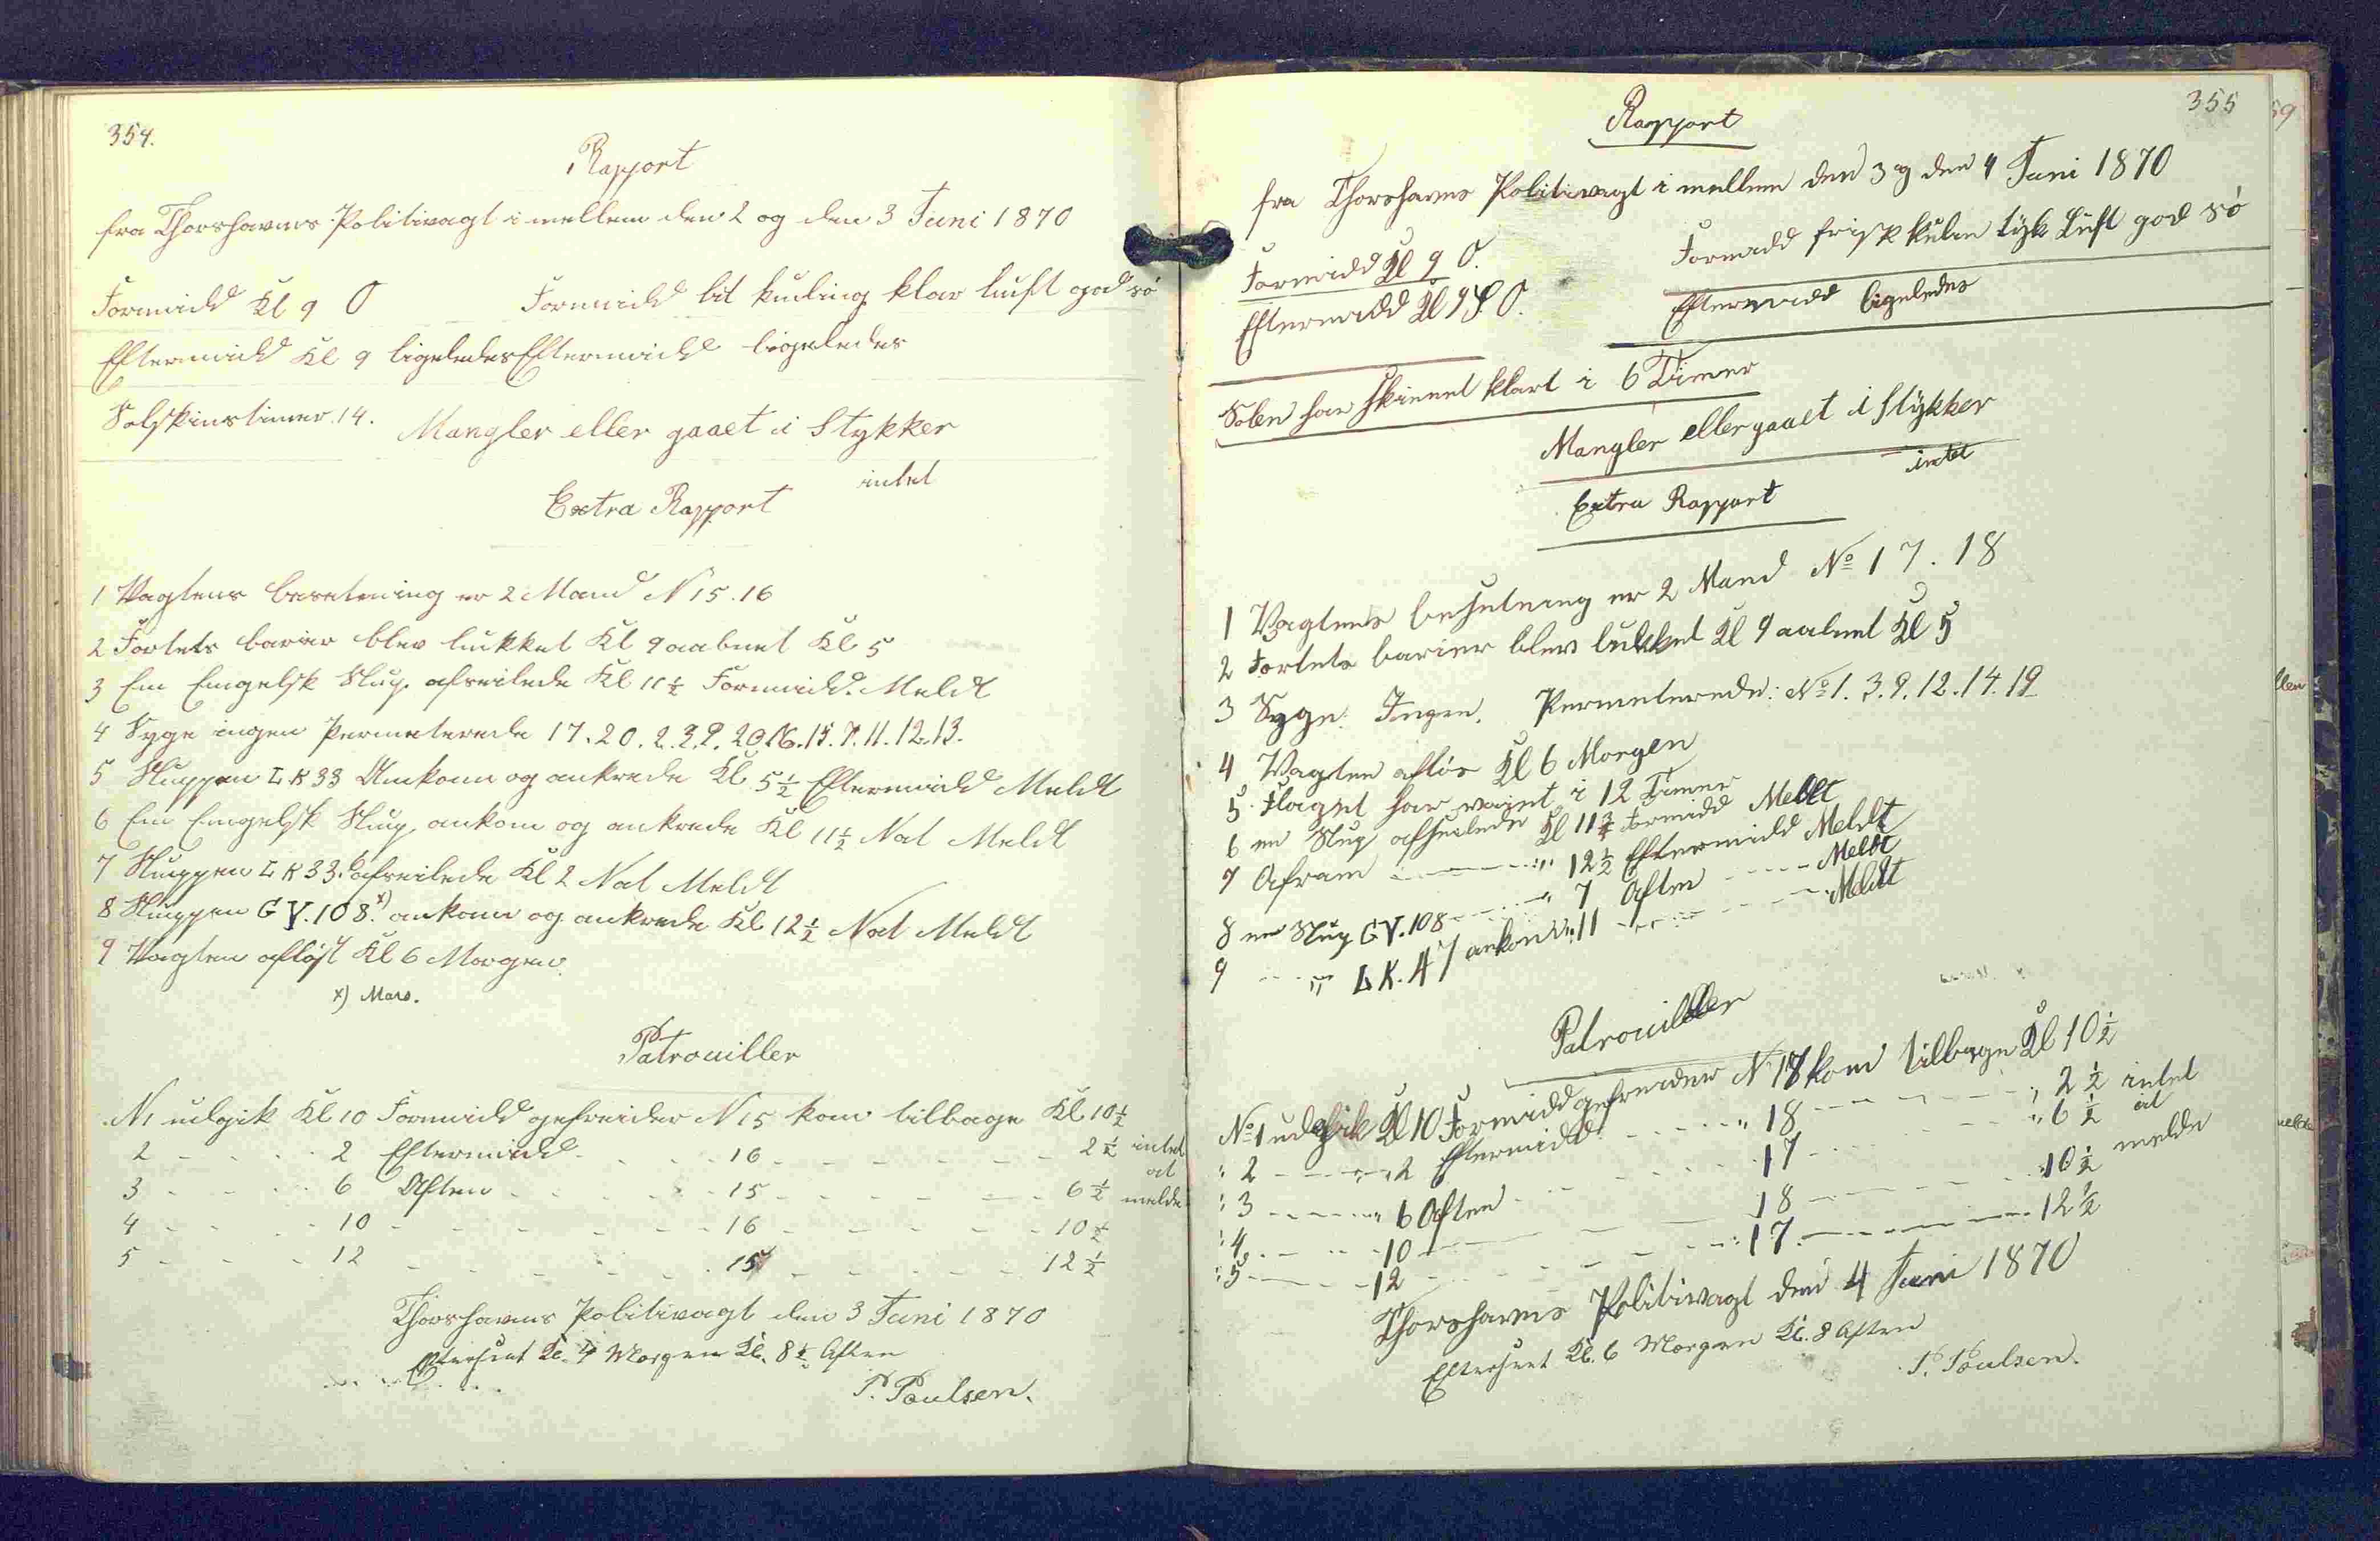 354.
Rapport
fra Thorshavns Politivagt imellem den 2 og den 3 Juni 1870
Formidd Kl 9 O Formidd lit kuling klar luft god sö
Eftermidd Kl 9 ligeledes Eftermidd ligeledes
Solskinstimer. 14. Mangler eller gaaet i Stykker
intet
Extra Rapport
1 Vagtens besetning er 2 Mand N 15. 16
2 Fortets barier blev lukket Kl 9 aabnet Kl 5
3 En Engelsk Slup. afseilede Kl 11½ Formidd. Meldt
4 Syge ingen Permeterede 17. 20. 2. 3. 9. 20. 16. 15. 7. 11. 12. 13.
5 Sluppen LK 33 Ankom og ankrede Kl. 5½ Eftermidd Meldt
6 En Engelsk Slup, ankom og ankrede Kl 11½ Nat Meldt
7 Sluppen LK 33. afseilede Kl 2 Nat Meldt
8 Sluppen GV. 108. x) ankom og ankrede Kl 12½ Nat Meldt
9 Vagten afløst Kl 6 Morgen.
x) Mars.
Patrouiller
N 1 udgik Kl 10 Formidd gefreider N 15 kom tilbage Kl 10½
2 - - - 2 Eftermidd. - - 16 - - - - - 2½ intet
at
3 - - - 6 Aften - - - 15 - - - - - 6½ melde
4 - - - 10 - - - - - 16 - - - - - 10½
5 - - - 12 - - - - - 15 - - - - - 12½
Thorshavns Politivagt den 3 Juni 1870
Efterseet Kl. 4 Morgen Kl. 8½ Aften
P. Poulsen.
355
Rapport
fra Thorshavns Politivagt i mellem den 3 og den 4 Juni 1870
Formidd Kl 9 O. Formidd frisk kulen tyk Luft god sö
Eftermidd Kl 9 S. O. Eftermidd ligeledes
Solen har skinnet klart i 6 Timer
Mangler eller gaaet i stykker
intet
Extra Rapport
1 Vagtens besetning er 2 Mand No 17. 18
2 Fortets barier blev lukket Kl 9 aabnet Kl 5
3 Syge: Ingen. Permeterede: No 1. 3. 9. 12. 14. 19
4 Vagten afløs Kl 6 Morgen
5. Flaget har vaiet i 12 Timer
6 en Slup afseilede Kl 11¾ Formidd Meldt
7 - - - 12½ Eftermidd Meldt
8 en Slup GV. 108 - - - 7 Aften - - - Meldt
9 - - " LK. 47 ankom " 11 - - - - - Meldt
Patrouiller
No 1 udgik Kl 10 Formidd gefreider N 17 kom tilbage Kl 10½
" 2 - - - " 2 Eftermidd - - - " 18 - - - - " 2½ intet
" 3 - - - " 6 Aften - - - 17 - - - - " 6½ at
" 4. - - - 10 - - - 18 - - - - 10½ melde
" 5 - - - 12 - - - 17. - - - - 12½
Thorshavns Politivagt den 4 Juni 1870
Efterseet Kl. 6 Morgen Kl. 8 Aften
P. Poulsen.
59